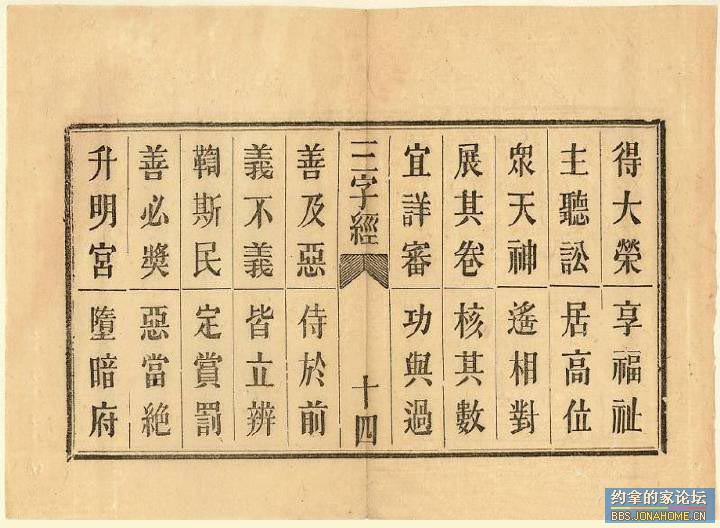 得大榮 享福祉
主聽訟 居高位
眾天神 遙相對
展其卷 核其數
宜詳審 功與過
三字經 十四
善及惡 侍於前
義不義 皆立辨
鞫斯民 定賞罰
善必獎 惡當絕
升明宮 墮暗府
约拿的家论坛
BBS.JONAHOME.CN